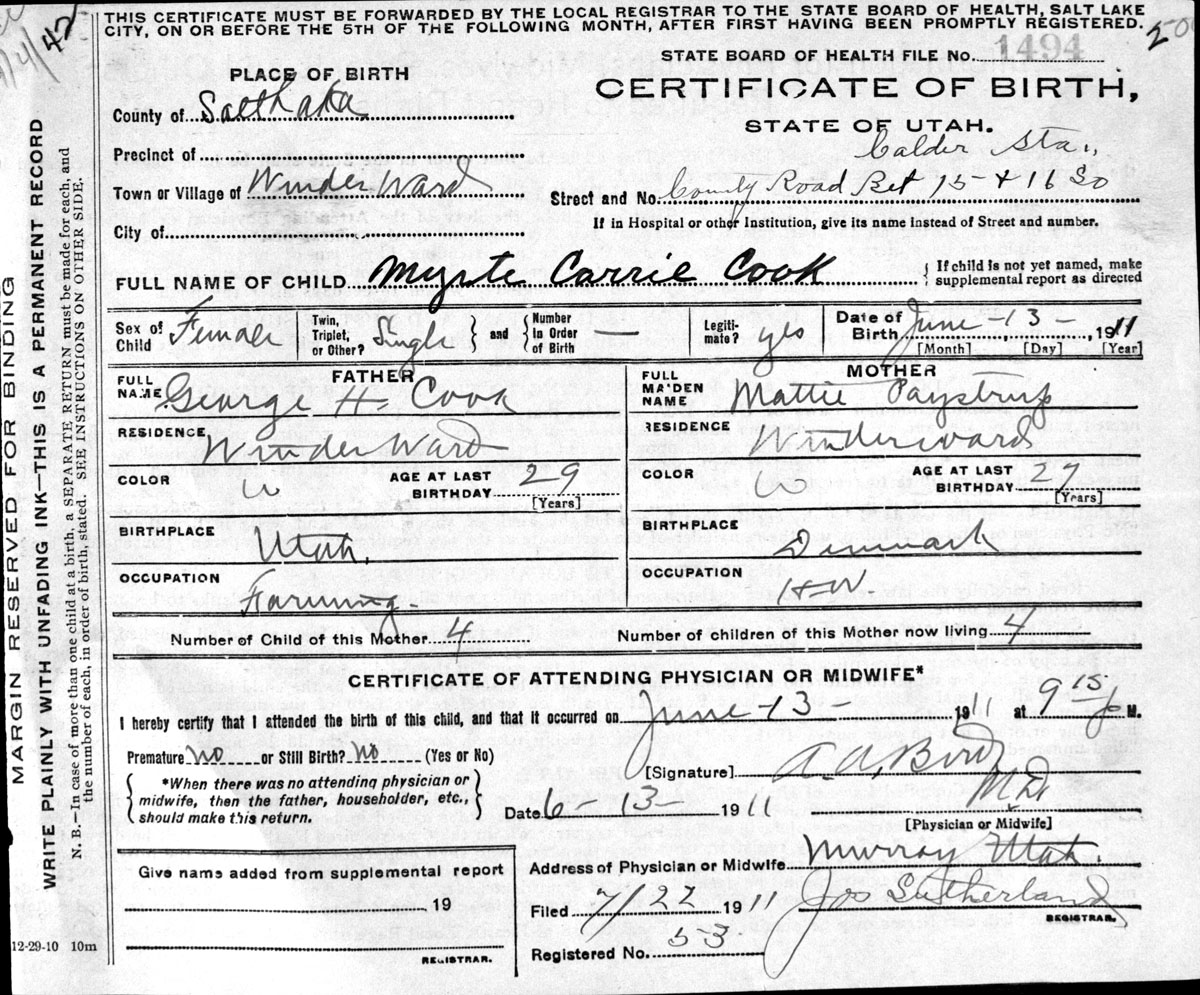 THIS CERTIFICATE MUST BE FORWARDED BY THE LOCAL REGISTRAR TO THE STATE BOARD OF HEALTH, SALT LAKE
CITY, ON OR BEFORE THE 5TH OF THE FOLLOWING MONTH, AFTER FIRST HAVING BEEN PROMPTLY REGISTERED.
STATE BOARD OF HEALTH FILE No. 1494
CERTIFICATE OF BIRTH,
STATE OF UTAH.
PLACE OF BIRTH
County of Salt Lake
Precinct of
Town or Village of Winder Ward
City of
Calder Sta.,
Street and No. County Road Bet 15 & 16 So
If in Hospital or other Institution, give its name instead of Street and number.
FULL NAME OF CHILD Myrte Carrie Cook
{ If child is not yet named, make
supplemental report as directed
Sex of Child Female
Twin, Triplet, or Other? Single } and { Number in Order of Birth —
Legiti-mate? yes
Date of Birth June - 13 - , 1911
[Month] [Day] [Year]
FATHER
FULL NAME George H. Cook
RESIDENCE Winder Ward
COLOR W AGE AT LAST BIRTHDAY 29
[Years]
BIRTHPLACE Utah.
OCCUPATION Farming.
MOTHER
FULL MAIDEN NAME Mattie Paystrup
RESIDENCE Winderward
COLOR W AGE AT LAST BIRTHDAY 27
[Years]
BIRTHPLACE Denmark
OCCUPATION HW
Number of Child of this Mother 4 Number of children of this Mother now living 4
CERTIFICATE OF ATTENDING PHYSICIAN OR MIDWIFE*
I hereby certify that I attended the birth of this child, and that it occurred on June - 13 - 1911 at 9 15 p M.
Premature no or Still Birth? no (Yes or No)
{ *When there was no attending physician or
midwife, then the father, householder, etc.,
should make this return. }
[Signature] A. A. Bird
M.D.
Date 6 - 13 - 1911
[Physician or Midwife]
Address of Physician or Midwife Murray Utah.
Give name added from supplemental report
19
REGISTRAR.
Filed 7/22 1911 Jos Sutherland
REGISTRAR.
Registered No. 53
12-29-10 10m
MARGIN RESERVED FOR BINDING
WRITE PLAINLY WITH UNFADING INK—THIS IS A PERMANENT RECORD
N. B.—In case of more than one child at a birth, a SEPARATE RETURN must be made for each, and
the number of each, in order of birth, stated. SEE INSTRUCTIONS ON OTHER SIDE.